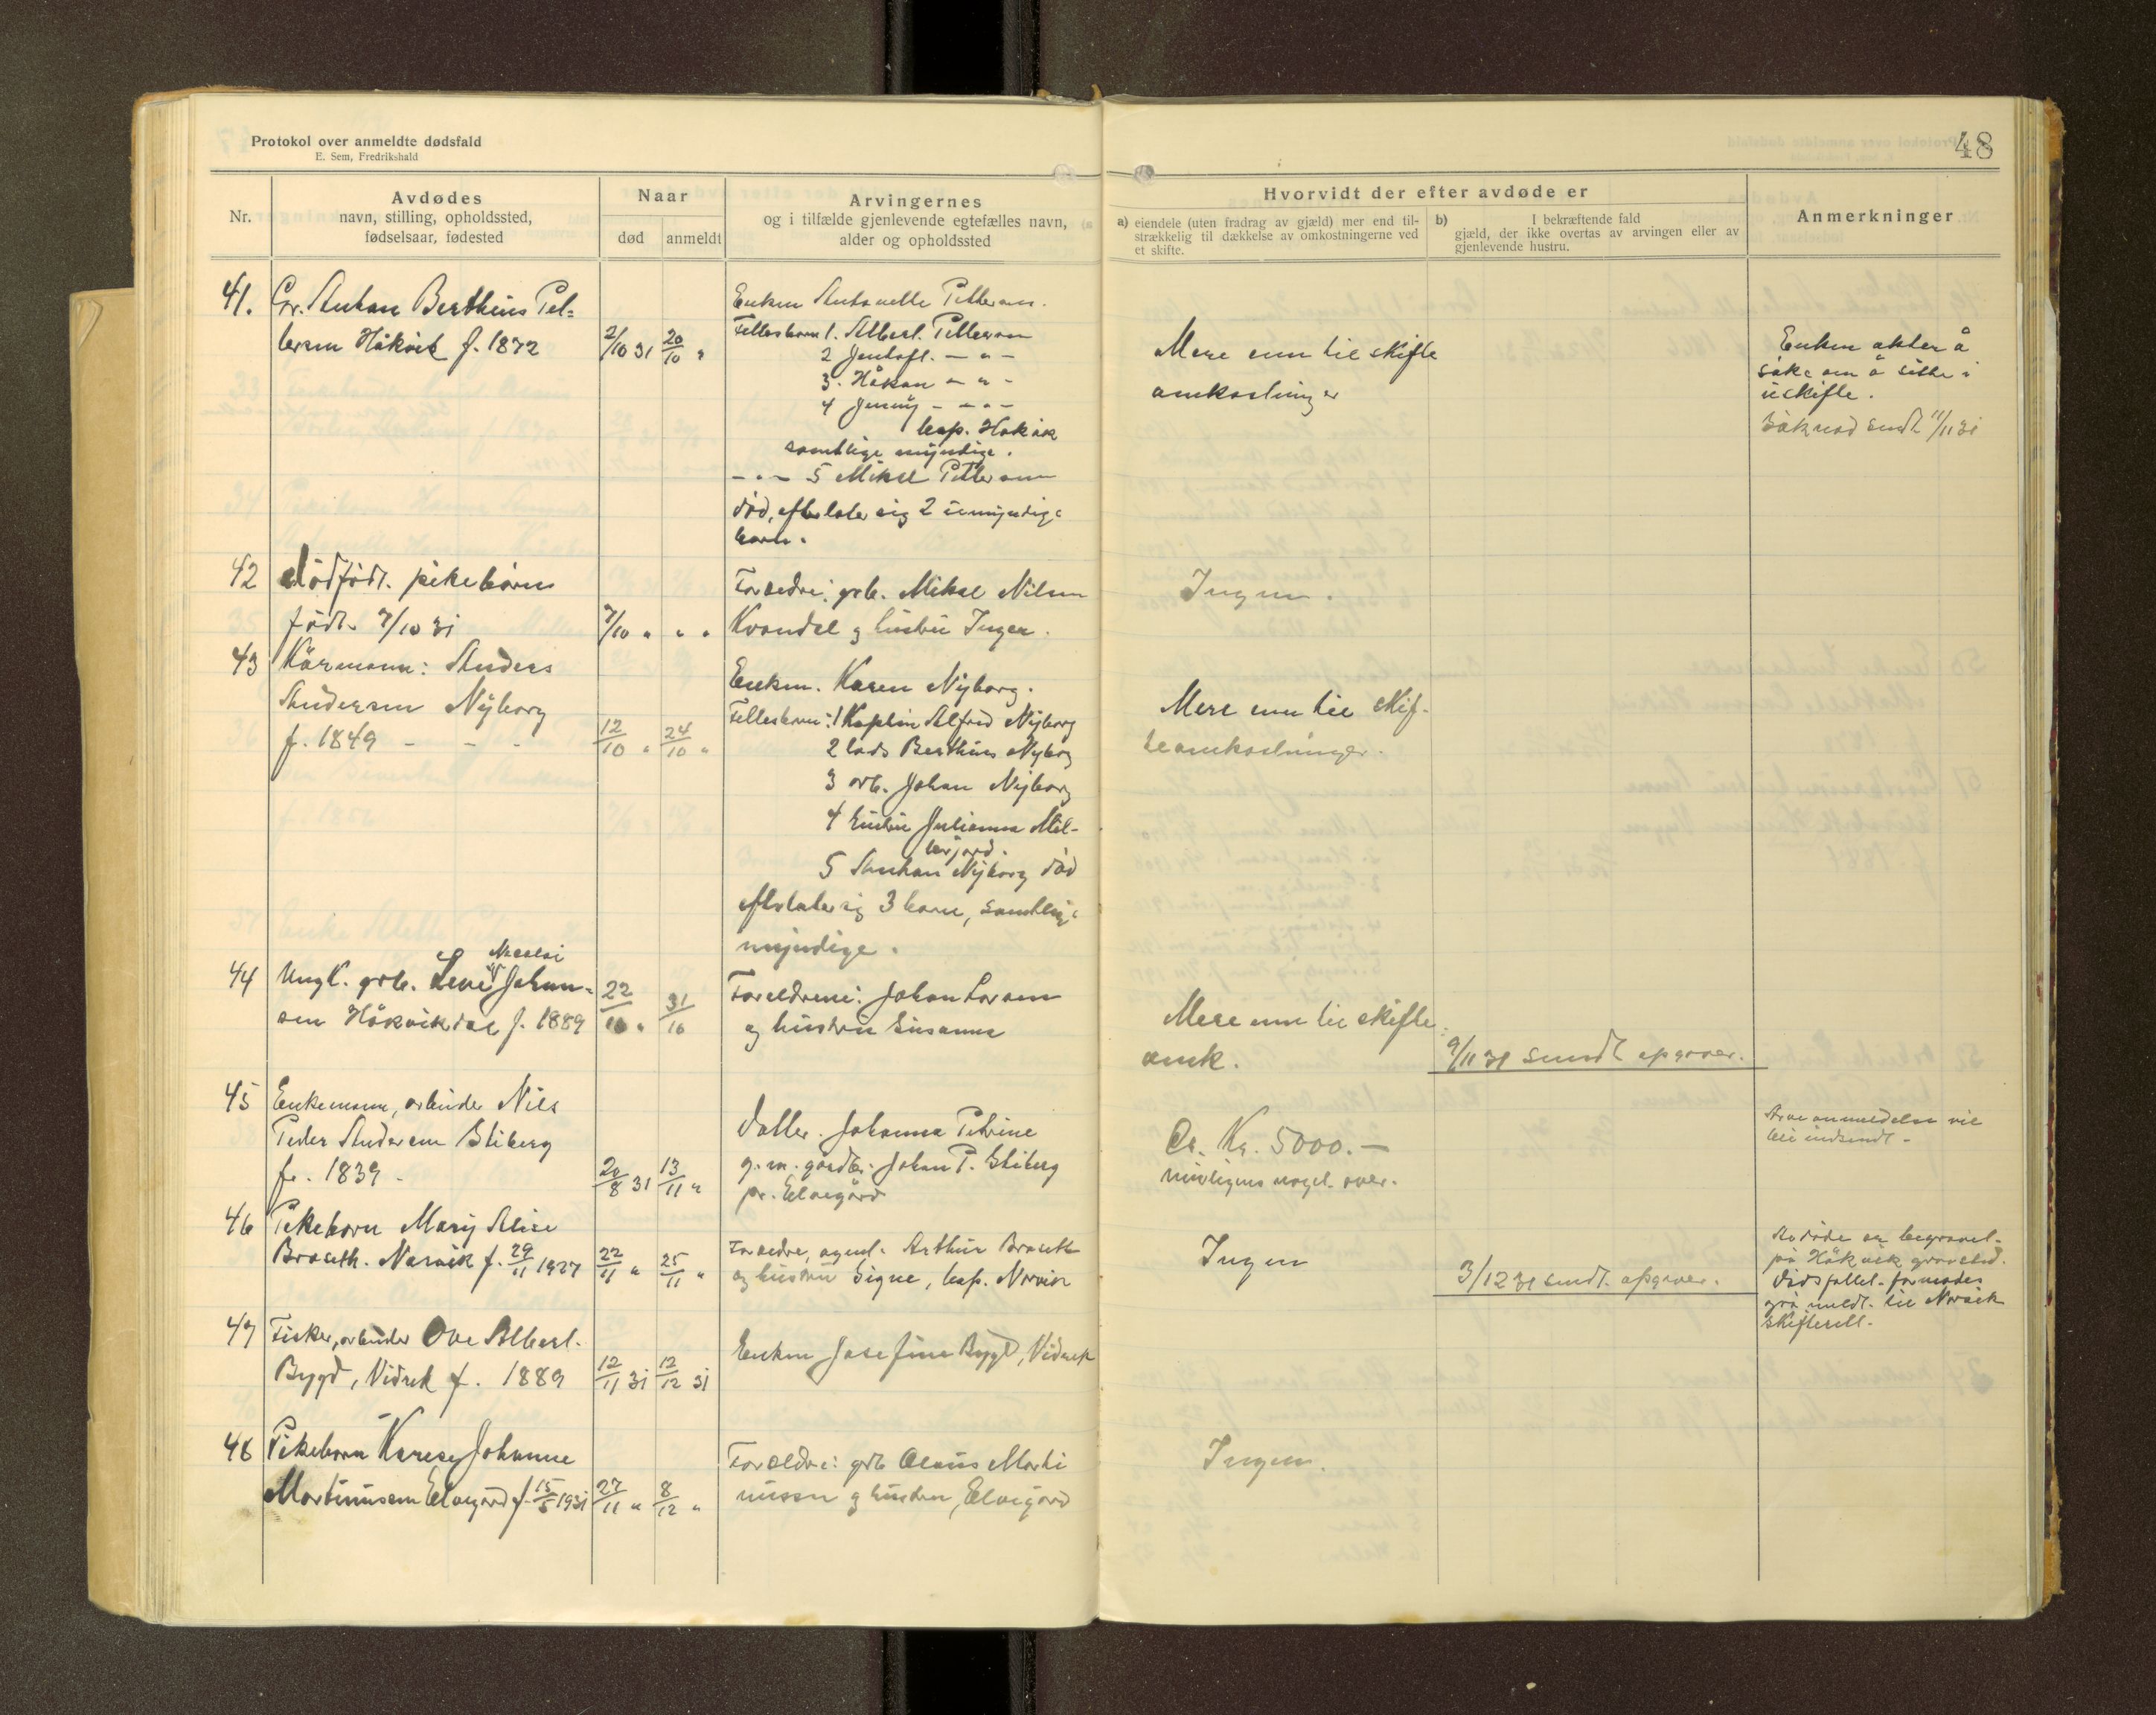 Protokol over anmeldte dødsfald
E. Sem, Fredrikshald
48
Nr.
Avdødes
navn, stilling, opholdssted,
fødselsaar, fødested
Naar
død
anmeldt
Arvingernes
og i tilfælde gjenlevende egtefælles navn,
alder og opholdssted
Hvorvidt der efter avdøde er
a) eiendele (uten fradrag av gjæld) mer end til-
strækkelig til dækkelse av omkostningerne ved
et skifte.
b) I bekræftende fald
gjæld, der ikke overtas av arvingen eller av
gjenlevende hustru.
Anmerkninger
41. Anton Berthius Pet-
tersen Håkvik f. 1872
2/10 31 20/10 "
Enken Antonette Pettersen.
Fellesbarn 1. Albert Pettersen
2 Jentoft. — " —
3. Håkon — " —
4 Jenny — " —
bop. Håkvik
samtlige myndige.
— " — 5 Mikal Pettersen
død, efterlater sig 2 umyndige
barn.
Mere enn til skifte
omkostninger
Enken akter å
søke om å sitte i
uskifte.
Søknad sendt 11/11 31
42 dødfødt. pikebarn
født 7/10 31
7/10 " " "
Foreldre: grb. Mikal Nilsen
Kvandal og hustru Inger.
Ingen.
43 Kårmann: Anders
Andersen Nyborg
f. 1849 - - -
12/10 " 24/10 "
Enken. Karen Nyborg.
Fellesbarn: 1 Alfred Nyborg
2 lods Berthius Nyborg
3 arb. Johan Nyborg
4 hustru Julianna Mel-
lerjord.
5 Anthon Nyborg død
efterlater sig 3 barn, samtlige
myndige.
Mere enn til skif-
teomkostninger.
44 Ungk. grb. Levi Johan-
sen Håkvikdal f. 1889
22/10 " 31/10
Foreldrene: Johan Larsen
og hustru Susanna
Mere enn til skifte
omk.
9/11 31 sendt opgaver.
45 Enkemann, arbeider Nils
Peder Andersen Stiberg
f. 1839 -
20/8 31 13/11 "
datter. Johanna Petrine
g. m. gårdbr. Johan P. Stiberg
pr. Elvegård
Ca. Kr. 5000.—
muligens noget over.
Arveanmeldelse vil
bli indsendt -
46 Pikebarn Mary Alise
Braseth. Narvik f. 29/11 1927
22/11 " 25/11 "
Foreldre, agent. Arthur Braseth
og hustru Signe, bop. Narvik
Ingen
3/12 31 sendt opgaver.
Avdøde er begravet
på Håkvik gravsted.
Dødsfallet formodes
også meldt til Narvik
skifterett.
47 Fisker, arbeider Ove Albert
Bygd, Vidrek f. 1889
12/11 31 12/12 31
Enken Josefine Bygd, Vidrek
48 Pikebarn Karese Johanne
Martinussen Elvegård f. 15/5 1931
27/11 " 8/12 "
Foreldre: grb Olaus Marti
nussen og hustru, Elvegård
Ingen.